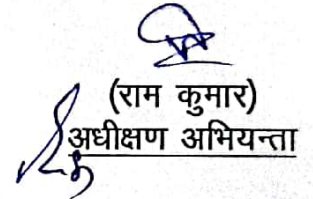 (राम कुमार)
अधीक्षण अभियन्ता